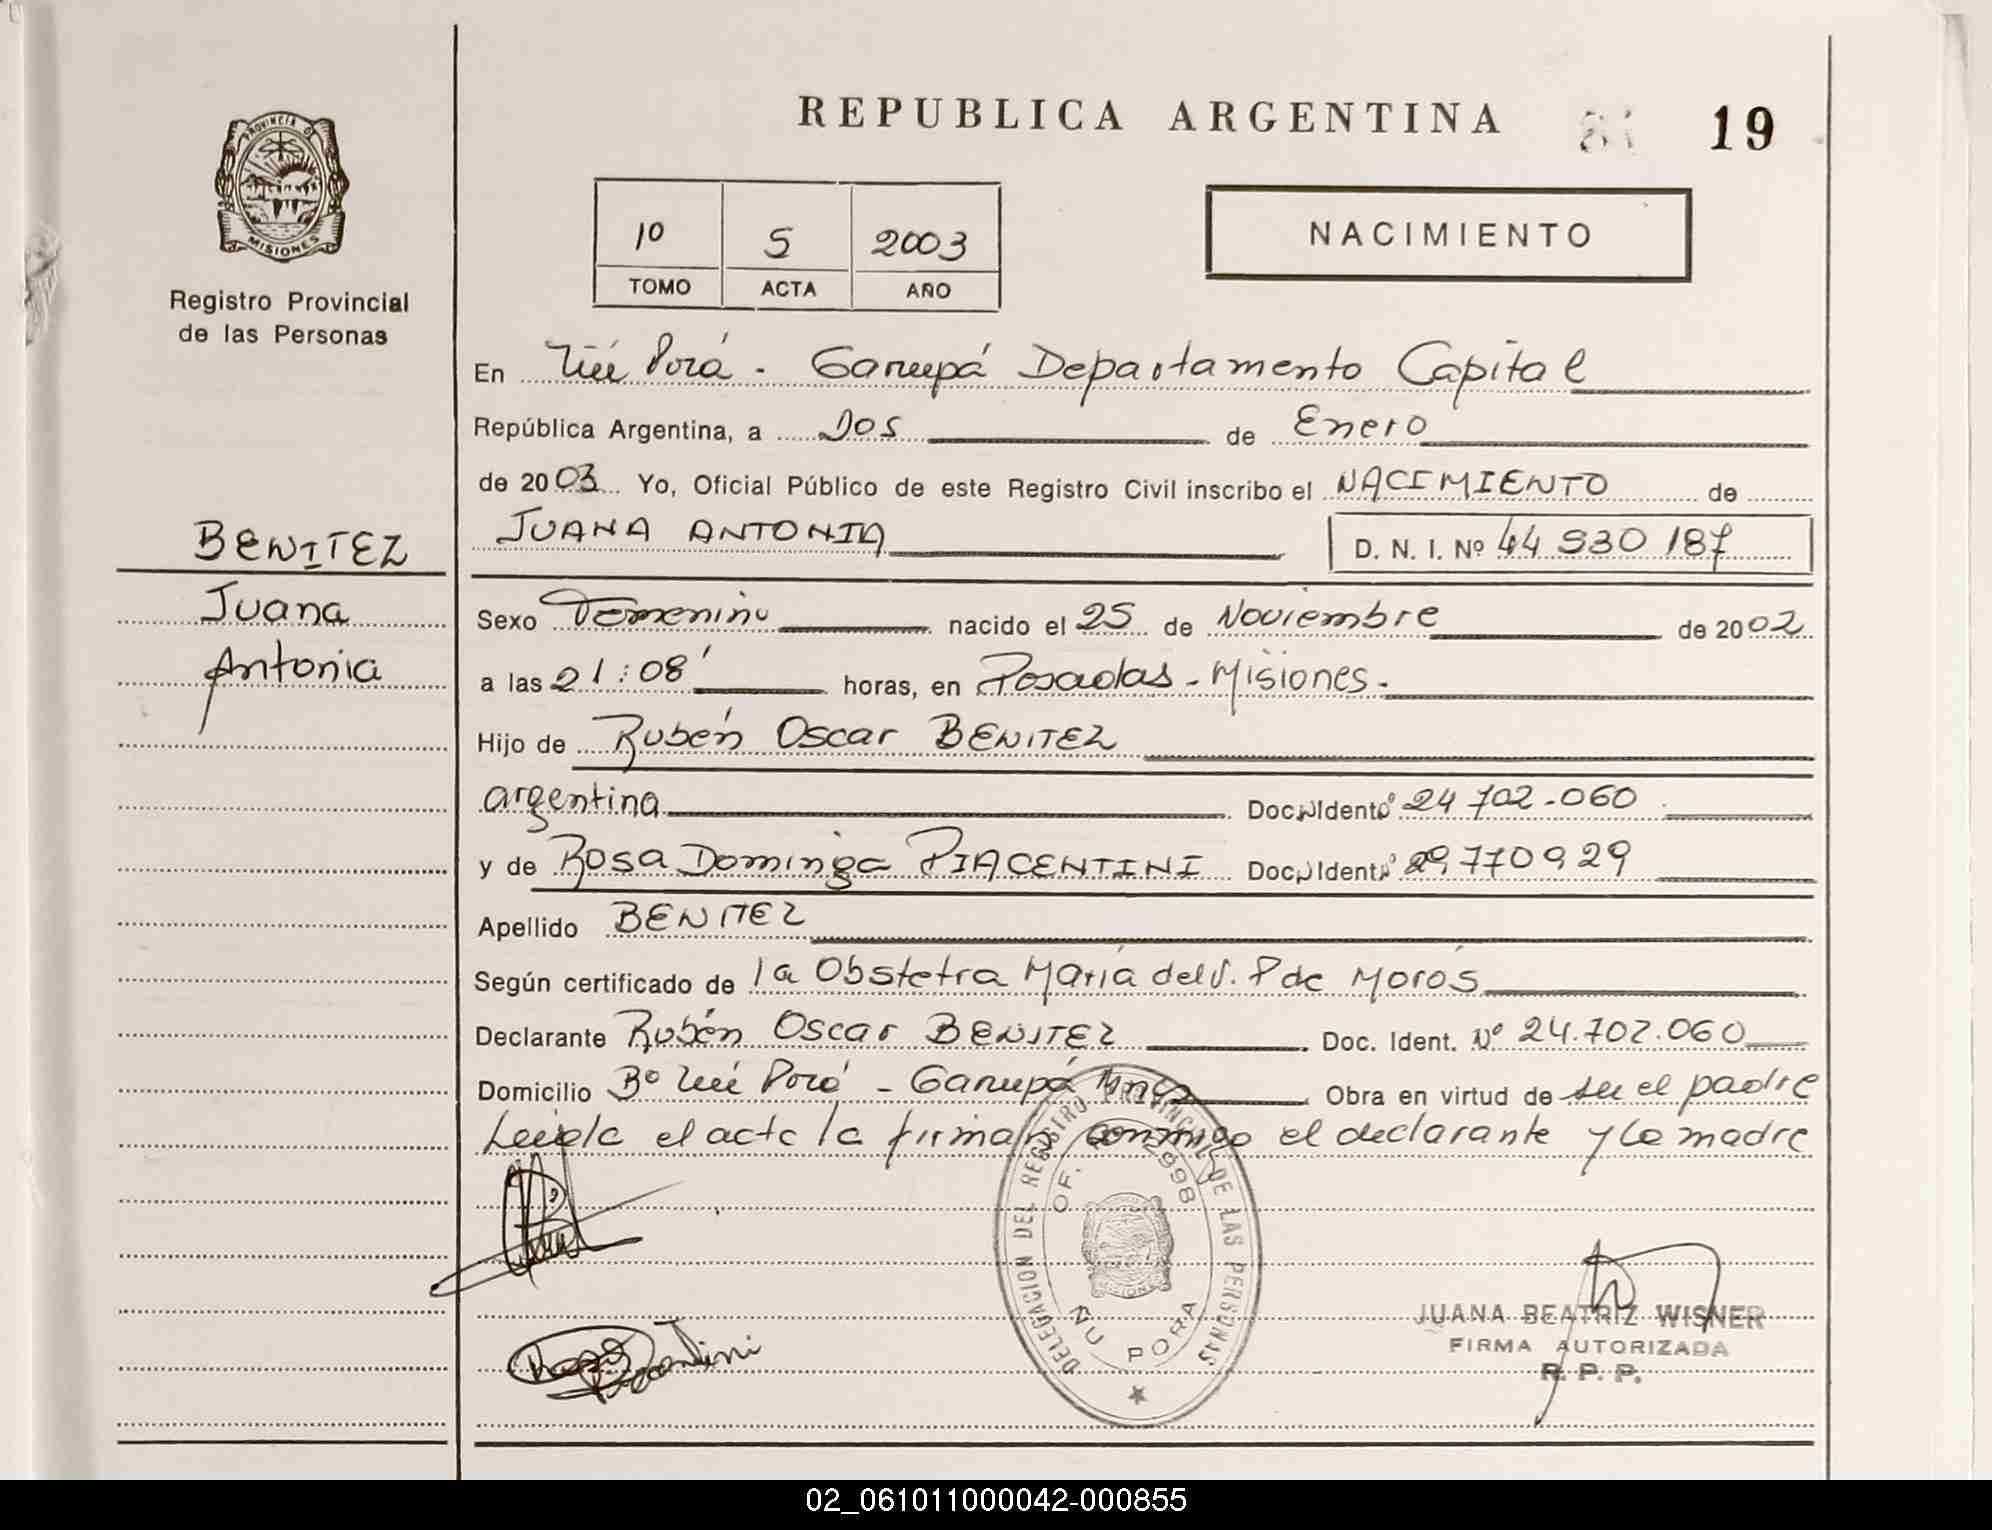 REPUBLICA ARGENTINA 19
PROVINCIA DE
MISIONES
Registro Provincial
de las Personas
1º 5 2003
TOMO ACTA AÑO
NACIMIENTO
En Ñú Porá - Garupá Departamento Capital
República Argentina, a Dos de Enero
de 2003 Yo, Oficial Público de este Registro Civil inscribo el NACIMIENTO de
JUANA ANTONIA D. N. I. Nº 44 930 187
BENITEZ
Juana
Antonia
Sexo Femenino nacido el 25 de Noviembre de 2002
a las 21:08' horas, en Posadas - Misiones.-
Hijo de Rubén Oscar BENITEZ
argentina Doc. Ident. Nº 24 702.060
y de Rosa Dominga PIACENTINI Doc. Ident. Nº 29.770929
Apellido BENITEZ
Según certificado de la Obstetra María del V. P de Morós
Declarante Rubén Oscar BENITEZ Doc. Ident. Nº 24.702.060
Domicilio Bº Ñú Porá - Garupá Mnes Obra en virtud de su el padre
Leída el acta la firman conmigo el declarante y la madre
DELEGACION DEL REGISTRO PROVINCIAL DE LAS PERSONAS
OF. 2998
MISIONES
ÑU PORA
JUANA BEATRIZ WISNER
FIRMA AUTORIZADA
R. P. P.
02_061011000042-000855